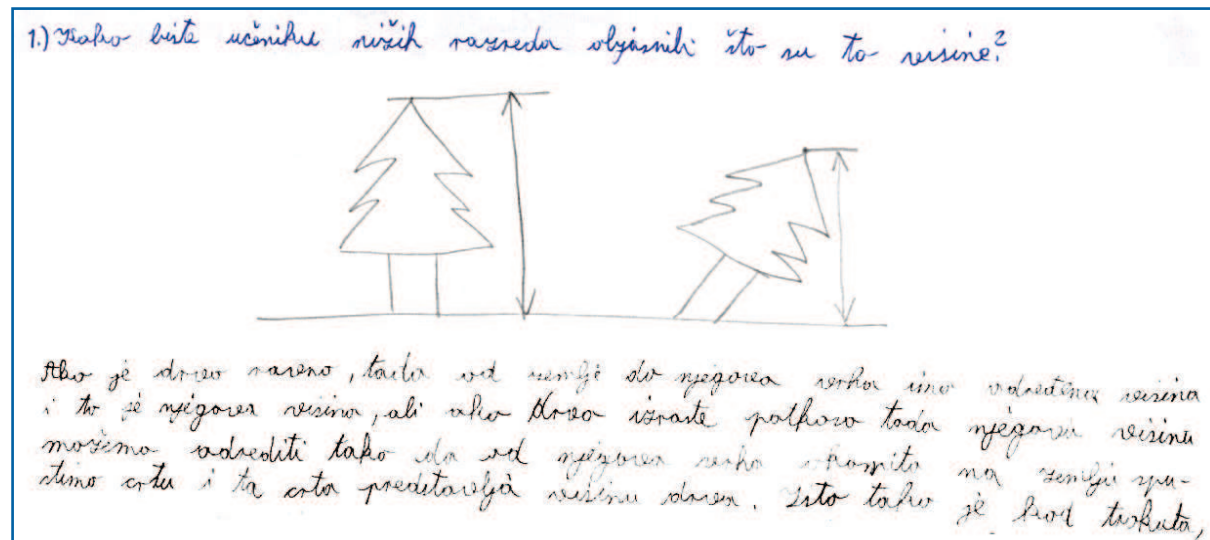 1.) Kako biste učeniku nižih razreda objasnili što su to visine?
Ako je drvo ravno, tada od zemlje do njegova vrha ima određena visina
i to je njegova visina, ali ako drvo izraste potkoso tada njegovu visinu
možemo odrediti tako da od njegova vrha okomito na zemlju spu-
stimo crtu i ta crta predstavlja visinu drva. Isto tako je kod trokuta,